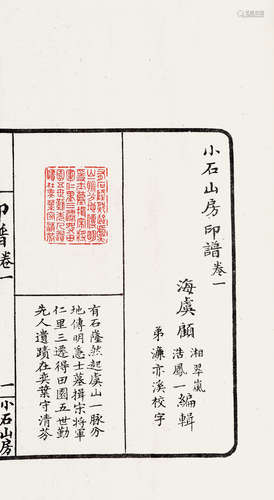 小石山房印譜卷一
海虞顧
湘翠嵐
浩鳳一
編輯
弟濂亦溪校字
有石隆然起虞山一脈分
地傳明逸士墓揖宋將軍
仁里三遷得田園五世勤
先人遺蹟在奕葉守清芬
印譜卷一
一
小石山房